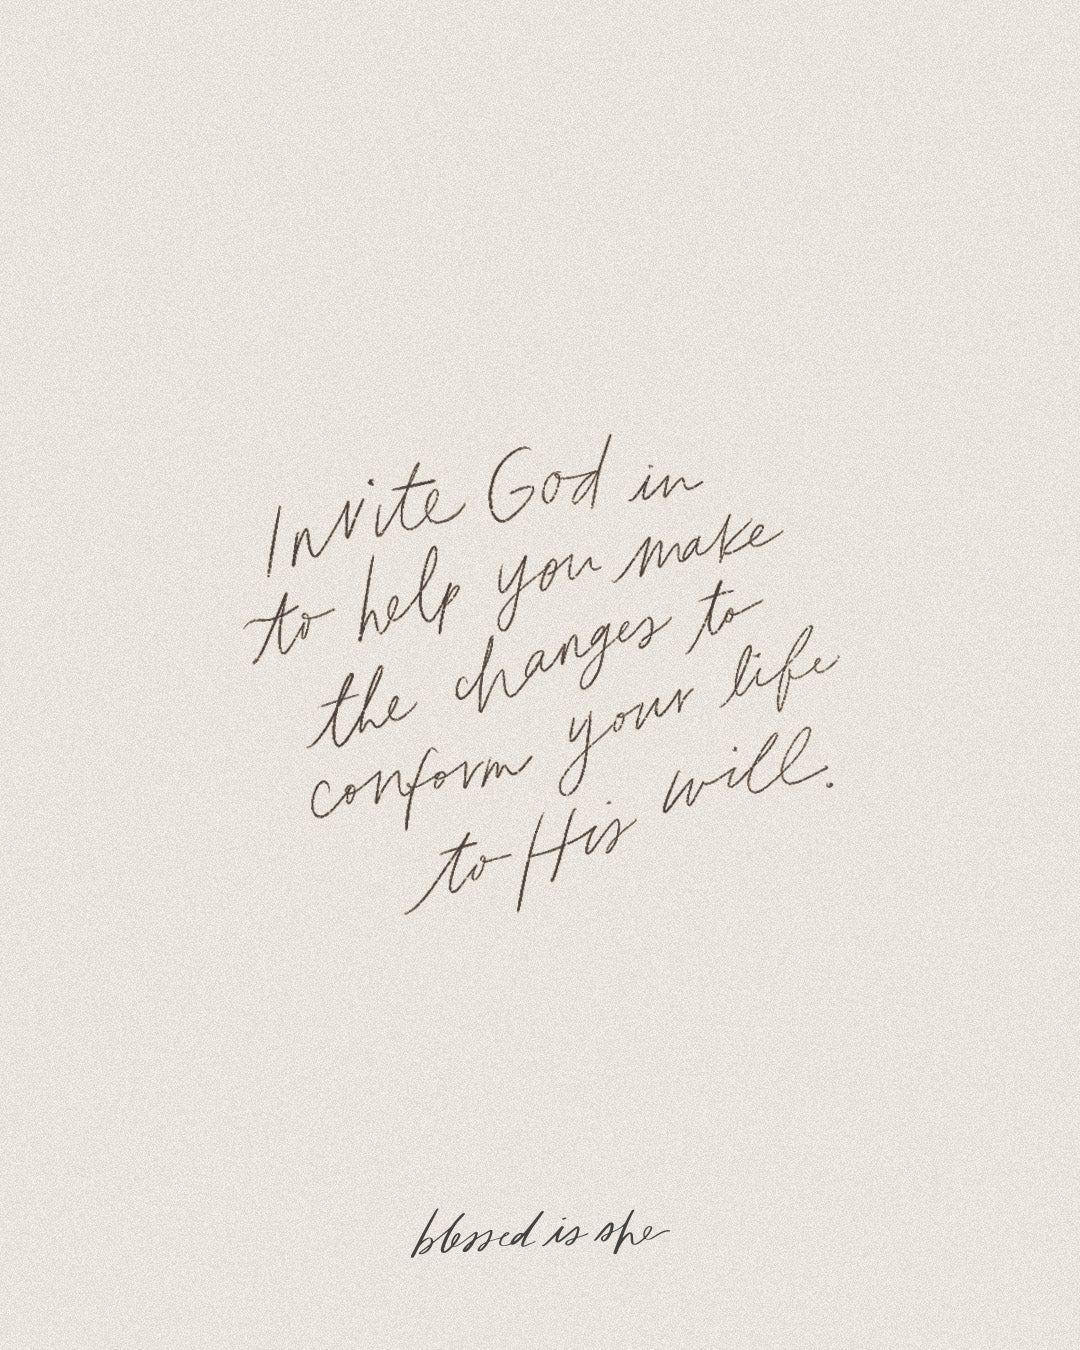 Invite God in
to help you make
the changes to
conform your life
to His will.
blessed is she